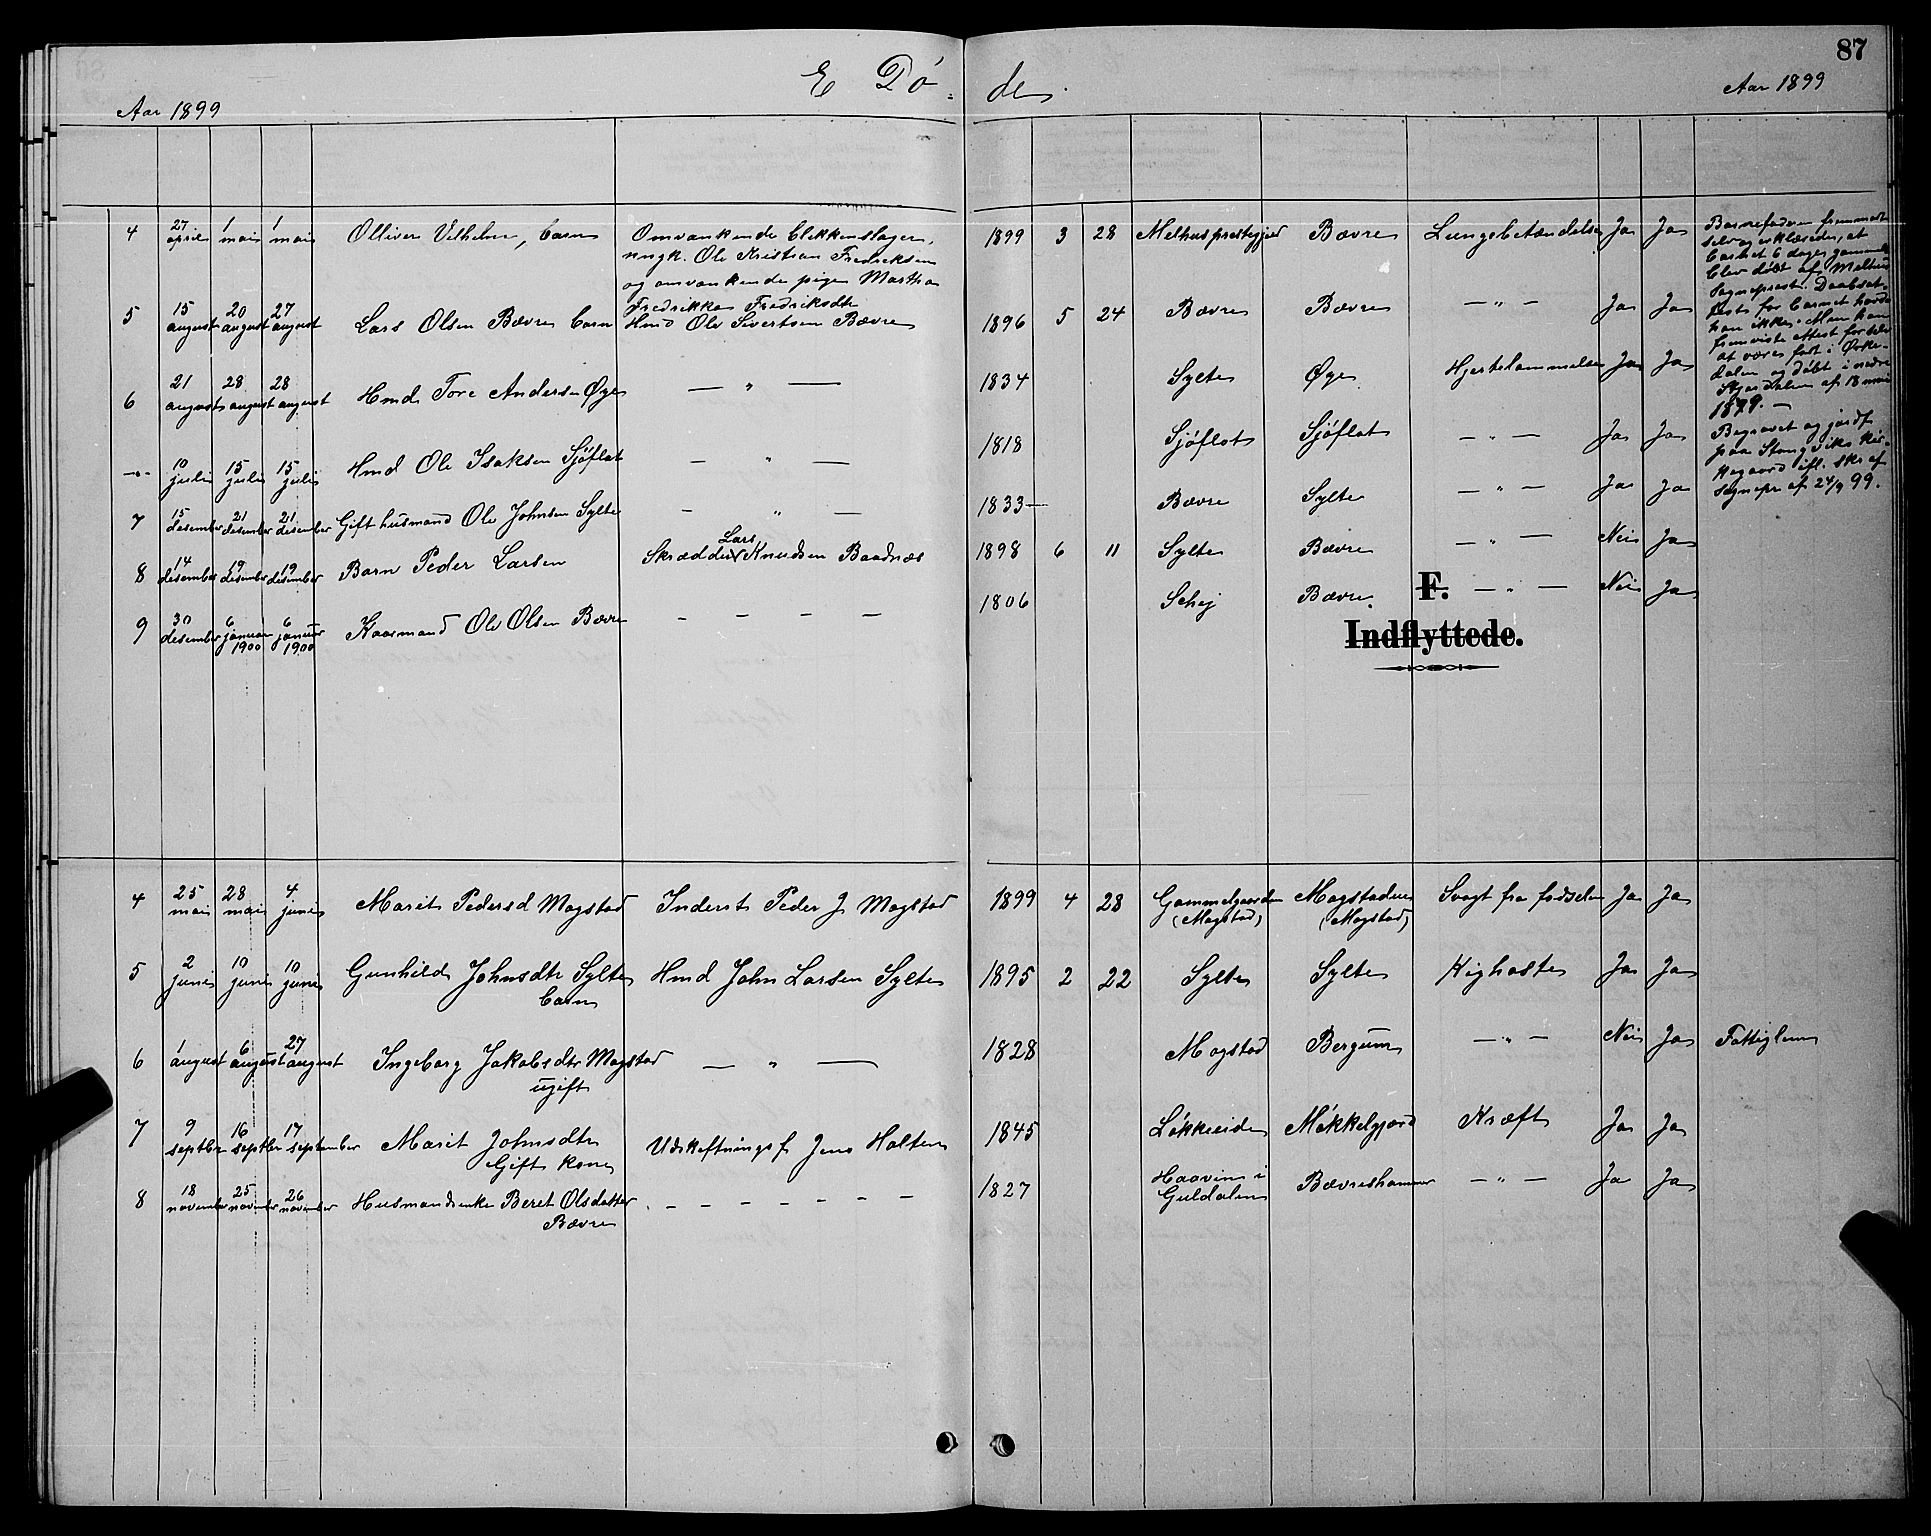 87
E Dø- de.
Aar 1899
Aar 1899
4 27 april 1 mai 1 mai Olliver Vilhelm, barn Omvankende blikkenslager, 1899 3 28 Melhus prestegjeld Bævre Lungebetændelse Ja Ja
ungk. Ole Kristian Fredriksen
og omvankende pige Martha
Fredrikke Fredriksdtr
5 15 august 20 august 27 august Lars Olsen Bævre barn Hmd Ole Sivertsen Bævre 1896 5 24 Bævre Bævre — " — Ja Ja
6 21 august 28 august 28 august Hmd. Tore Andersen Øye — " — 1834 Sylte Øye Hjertelammelse Ja Ja
—"— 10 juli 15 juli 15 juli Hmd Ole Isaksen Sjøflot — " — 1818 Sjøflot Sjøflot — " — Ja Ja
7 15 desember 21 desember 21 desember Gift husmand Ole Johnsen Sylte — " — 1833 — Bævre Sylte — " — Ja Ja
8 14 desember 19 desember 19 desember Barn Peder Larsen Skrædder Lars Knudsen Baadnæs 1898 6 11 Sylte Bævre — " — Nei Ja
9 30 desember 6 januar 1900 6 januar 1900 Kaarmand Ole Olsen Bævre — — — — 1806 Schej Bævre. — " — Nei Ja
Barnefaderen fremmødte
selv og erklærede, at
barnet 6 dage gammelt
blev døbt af Melhus
Sogneprest. Daabsat-
test for barnet havde
han ikke. Men han
fremviste attest for selv
at være født i Orke-
dalen og døbt i nedre
Stjørdalen af 18 mai
1879. —
Begravet og jordf.
paa Stangviks kir-
kegaard ifl. skr. af
Sognepr. af 24/9 99.
F.
Indflyttede.
4 25 mai 28 mai 4 juni Marit Pedersd Mogstad Inderst Peder J Mogstad 1899 4 28 Gammelgaarden (Mogstad) Mogstadnes (Mogstad) Svagt fra fødselen Ja Ja
5 2 juni 10 juni 10 juni Gunhild Johnsdtr Sylte Hmd John Larsen Sylte 1895 2 22 Sylte Sylte Kighoste Ja Ja
barn
6 1 august 6 august 27 august Ingeborg Jakobsdtr Mogstad — " — 1828 Mogstad Bergum — " — Nei Ja Fattiglem
ugift
7 9 septbr 16 septbr 17 september Marit Johnsdtr Udskiftningsf. Jens Holten 1845 Løkkeeide Møkkelgjerd Kræft Ja Ja
Gift kone
8 18 november 25 november 26 november Husmandsenke Beret Olsdatter — — — — — — 1827 Haavin i Guldalen Bævreshammer — " — Ja Ja
Bævre